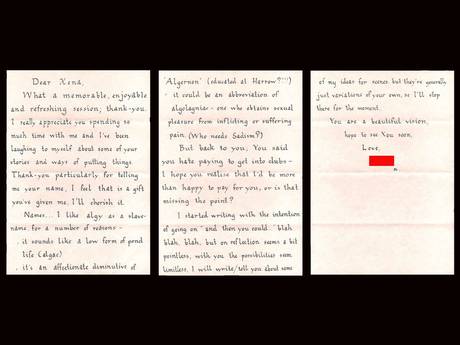 Dear Xena,
What a memorable, enjoyable
and refreshing session; thank-you.
I really appreciate you spending so
much time with me and I've been
laughing to myself about some of your
stories and ways of putting things.
Thank-you particularly for telling
me your name, I feel that is a gift
you've given me, I'll cherish it.
Names... I like algy as a slave-
name for a number of reasons -
. it sounds like a low form of pond
life (algae)
. it's an affectionate diminutive of
'Algernon' (educated at Harrow?'''!)
- it could be an abbreviation of
algolagniac - one who obtains sexual
pleasure from inflicting or suffering
pain. (Who needs Sadism?)
But back to you. You said
you hate paying to get into clubs -
I hope you realise that I'd be more
than happy to pay for you, or is that
missing the point?
I started writing with the intention
of going on "and then you could.." blah
blah, blah, but on reflection seems a bit
pointless, with you the possibilities seem
limitless. I will write/tell you about some
of my ideas for scenes but they're generally
just variations of your own, so I'll stop
there for the moment.
You are a beautiful vision,
hope to see You soon,
Love,